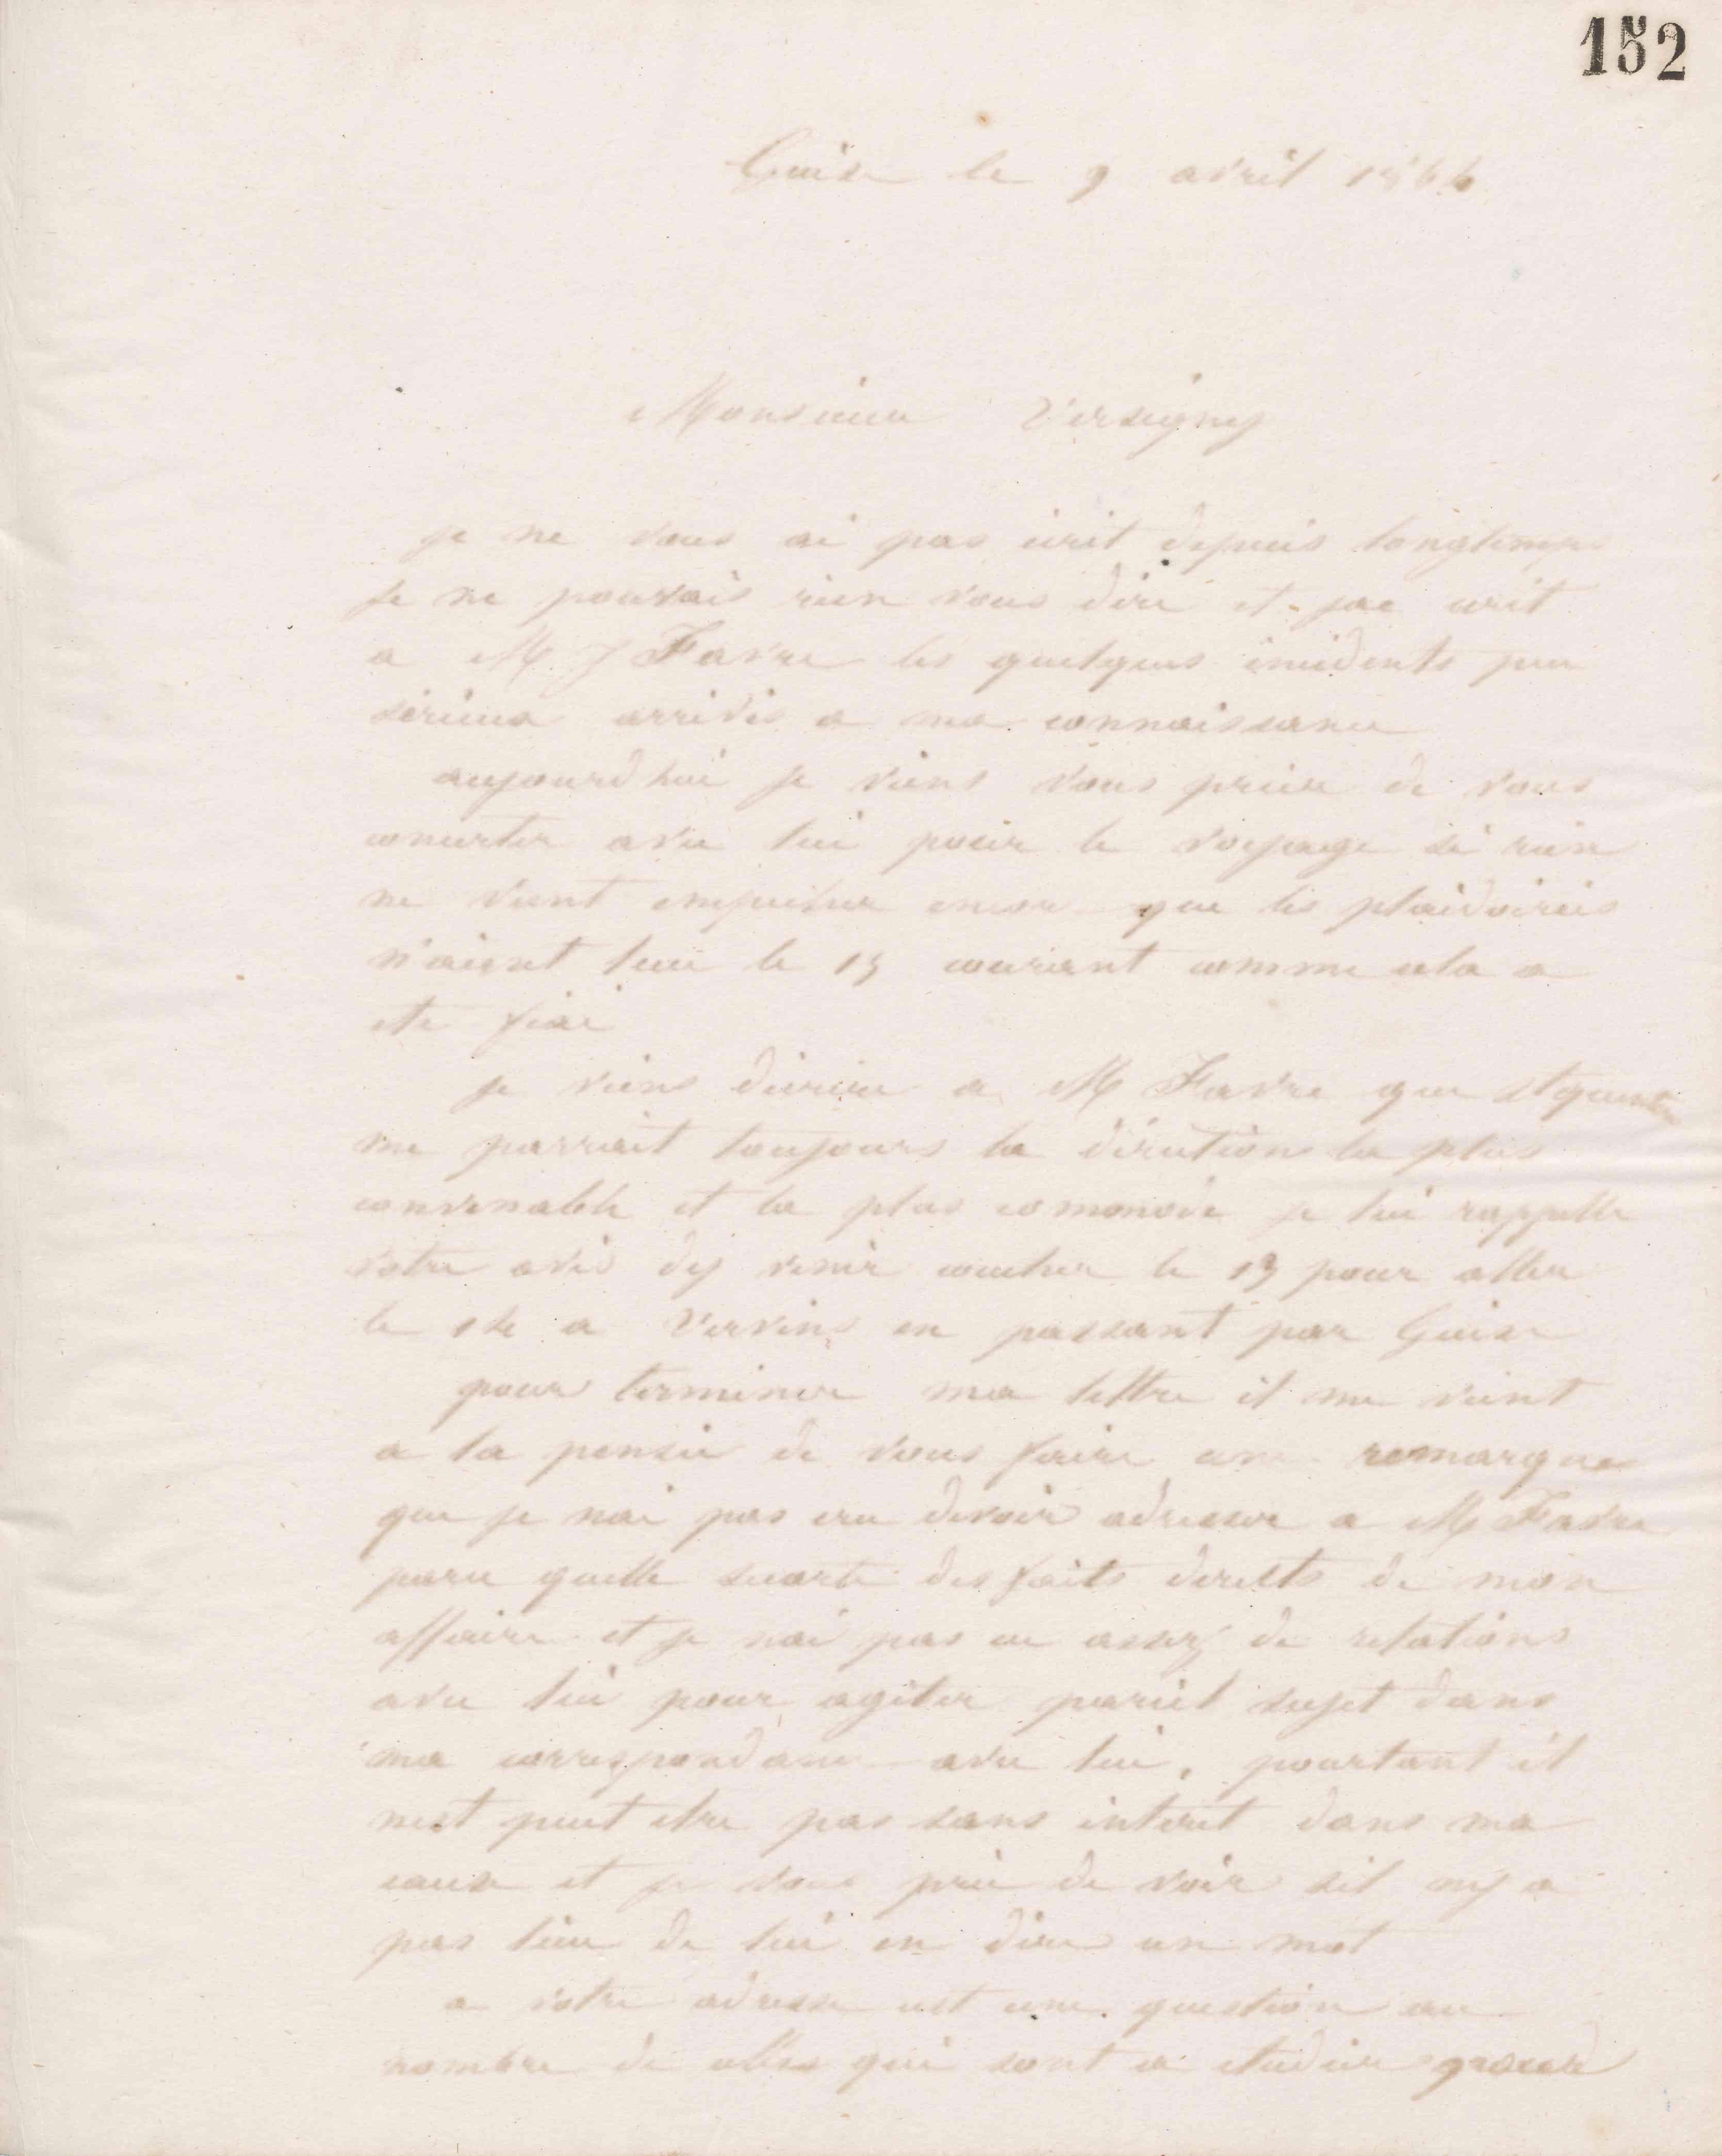 152
Guise le 9 avril 1866
Monsieur Versigny
je ne vous ai pas écrit depuis longtemps
je ne pouvais rien vous dire et jai écrit
a M. J Favre les quelques incidents peu
sérieux arrivés a ma connaissance
aujourdhui je viens vous prier de vous
concerter avec lui pour le voyage si rien
ne vient empecher encore que les plaidoiries
n'aient lieu le 15 courant comme cela a
ete fixé
je viens décrire a M Favre que St quentin
me parrait toujours la direction la plus
convenable et la plus commode je lui rappelle
votre avis dy venir coucher le 13 pour aller
le 14 a Vervins en passant par Guise
pour terminer ma lettre il me vient
a la pensée de vous faire une remarque
que je nai pas cru devoir adresser a M Favre
parce quelle secarte des faits directs de mon
affaire et je nai pas eu assez de relations
avec lui pour agiter pareil sujet dans
ma correspondance avec lui, pourtant il
nest peut etre pas sans interet dans ma
cause et je vous prie de voir sil ny a
pas lieu de lui en dire un mot
a votre adresse cest une question au
nombre de celles qui sont a etudier quand